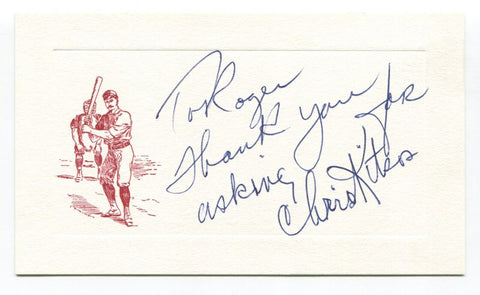 To Roger
Thank you for
asking
Chris Kitsos